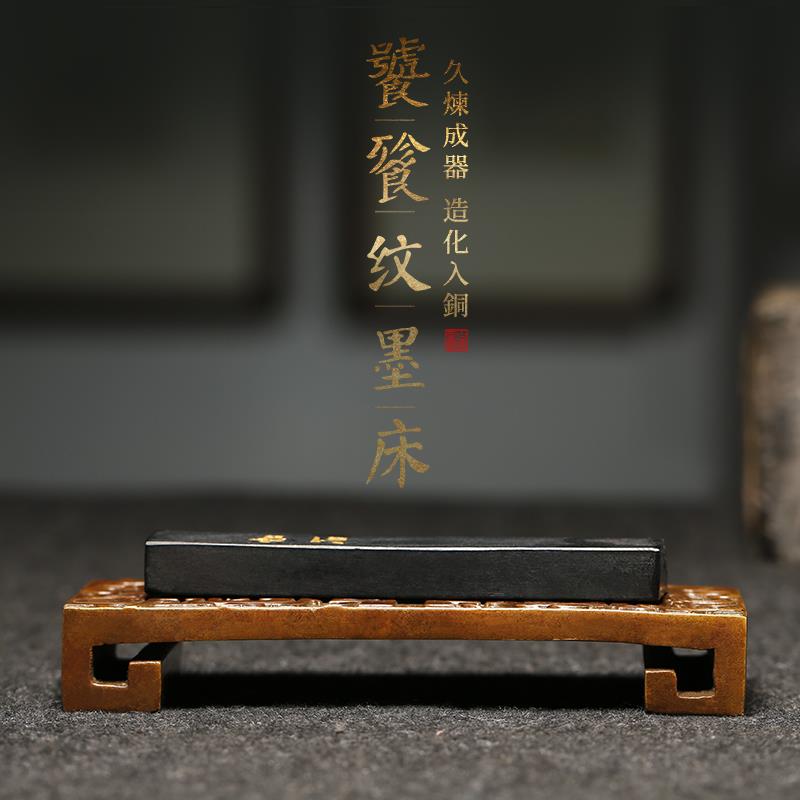 久煉成器 造化入銅
饕餮纹墨床